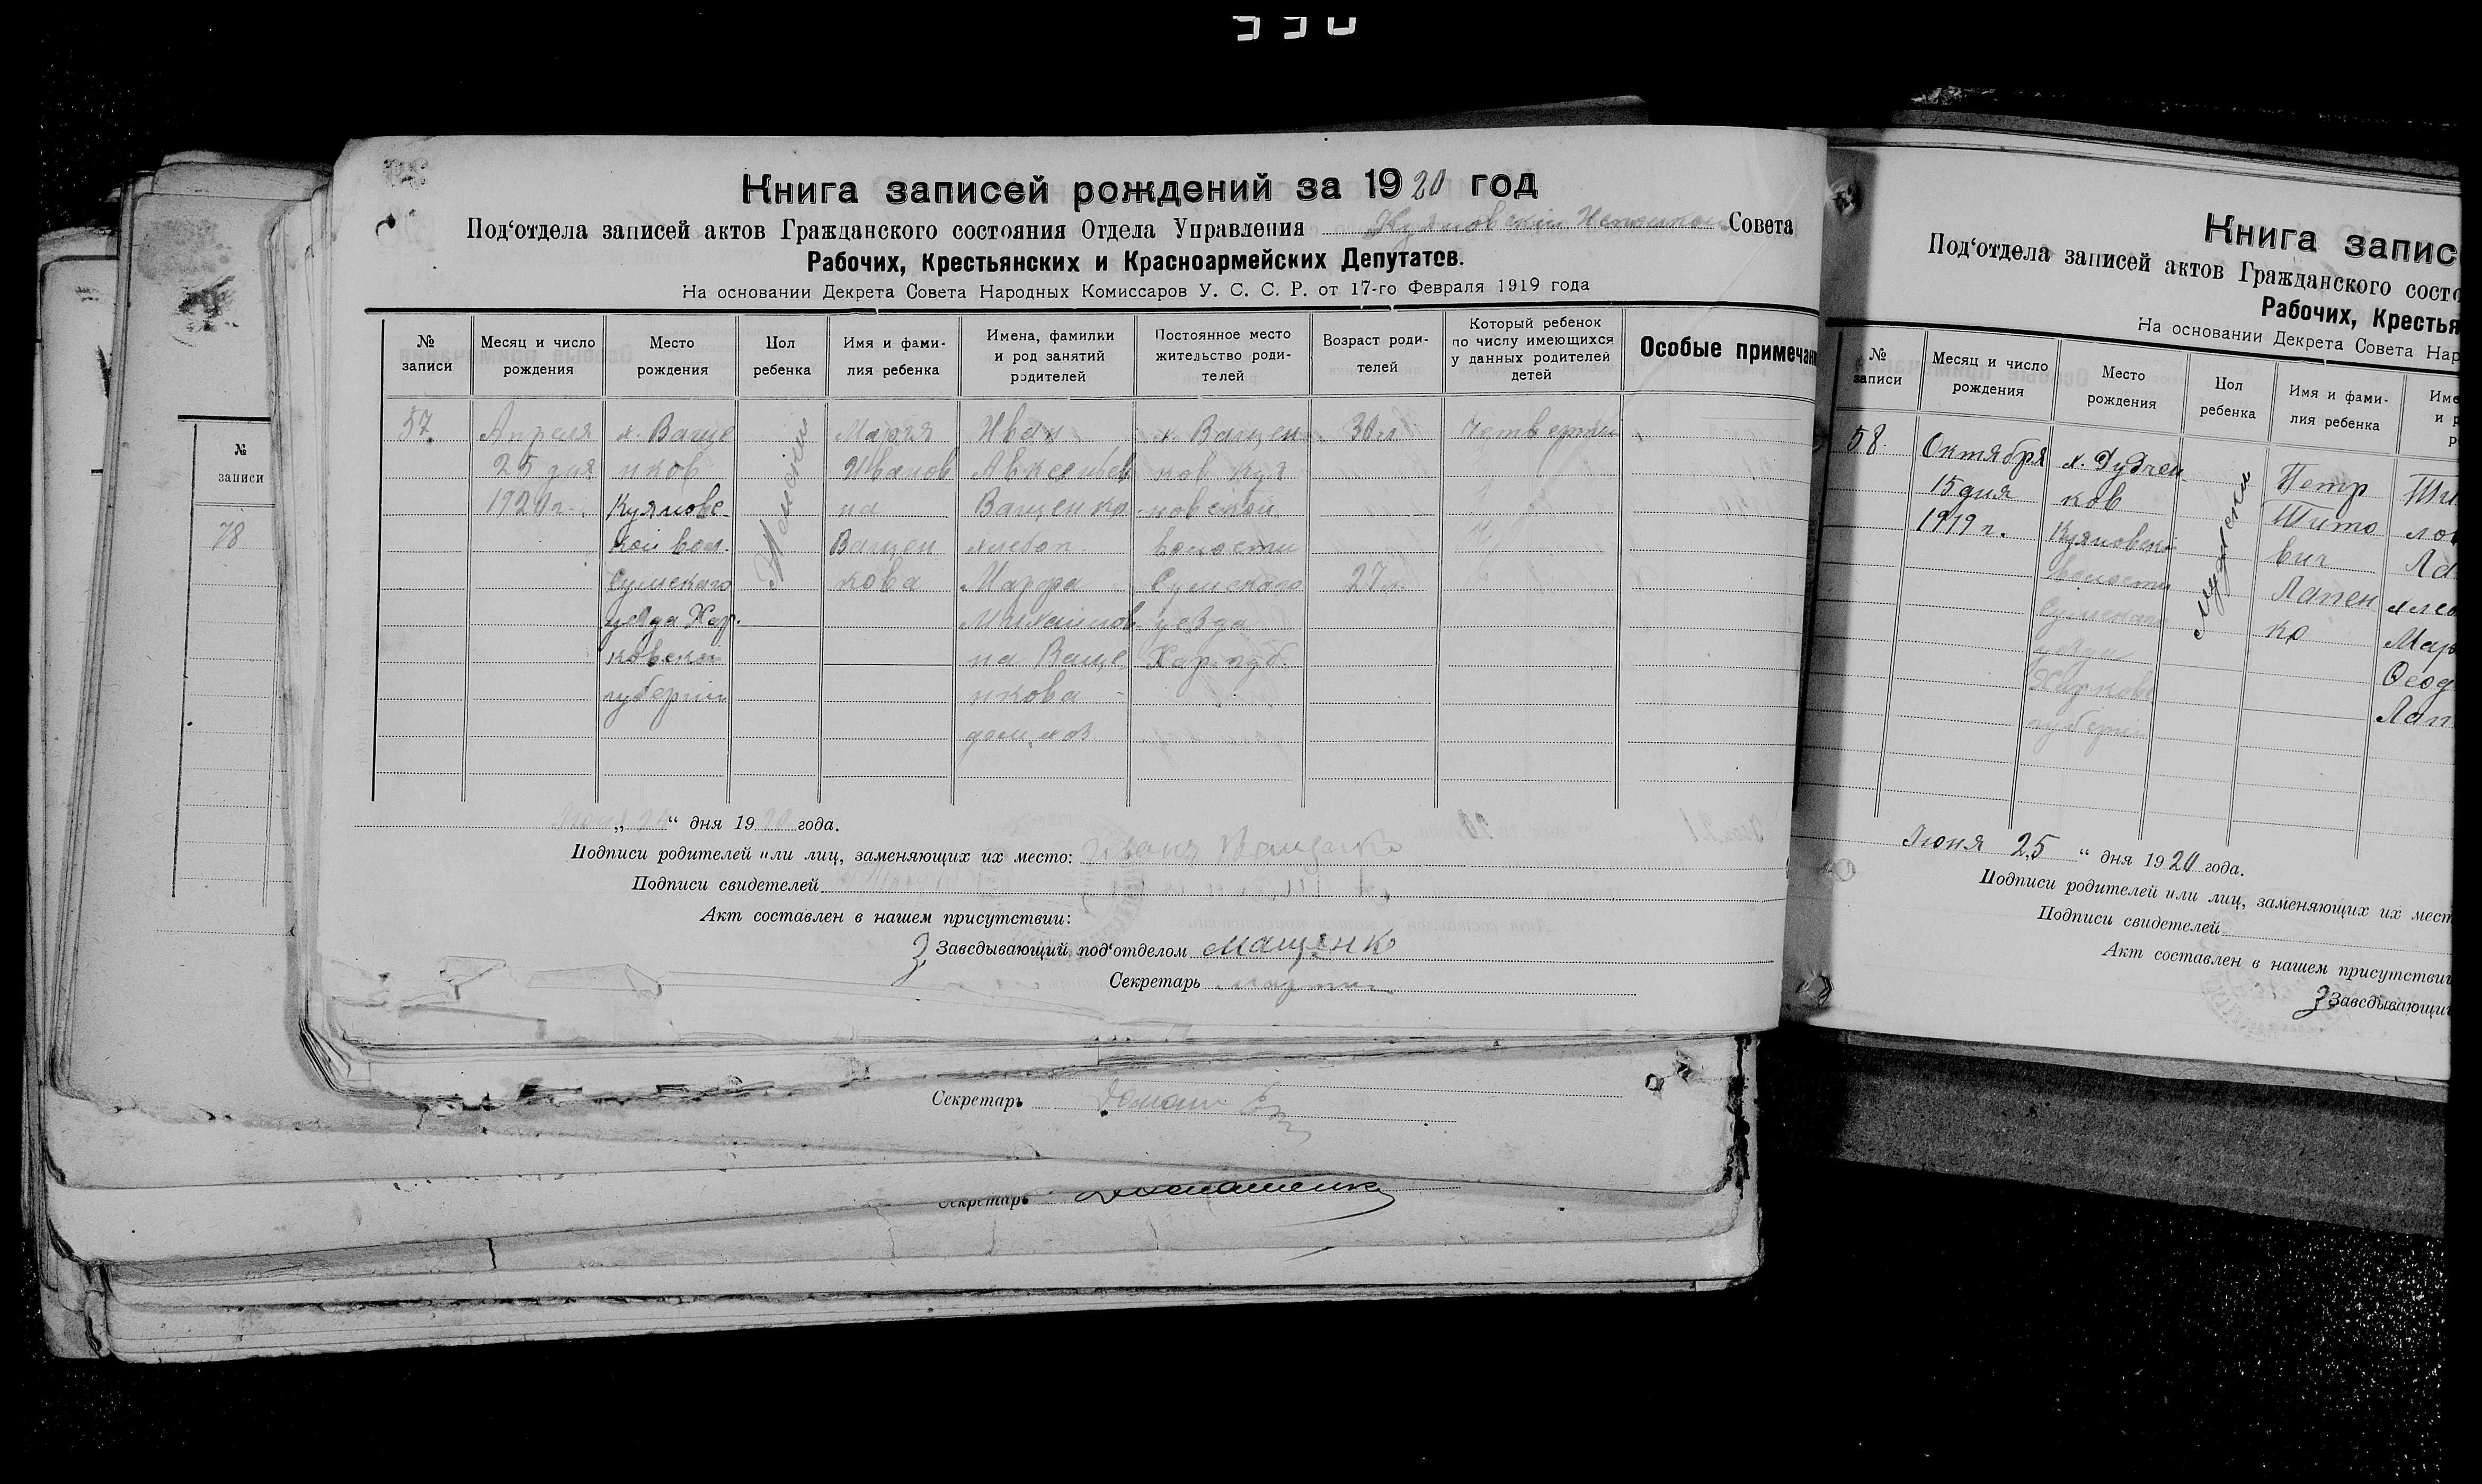 Книга записей рождений за 1920 год
Под‘отдела записей актов Гражданского состояния Отдела Управления Совета
Рабочих, Крестьянских и Красноармейских Депутатов.
На основании Декрета Совета Народных Комиссаров У. С. С. Р. от 17-го Февраля 1919 года
№ записи
Месяц и число рождения
Место рождения
Пол ребенка
Имя и фами-
лия ребенка
Имена, фамилии
и род занятий
родителей
Постоянное место
жительство роди-
телей
Возраст роди-
телей
Который ребенок
по числу имеющихся
у данных родителей
детей
Особые примечан
57.
Апреля
25 дня
1920 г.
х. Ваще
нков
Куяновс-
кой вол.
Сумскаго
уезда Хар.
ковской
губернии
Женский
Мария
Иванов
на
Ващен
кова
Иван
Ващенко
хлебоп.
Марфа
Михайлов
на Ваще
нкова
дом. хоз.
х. Ващен
ков Куя
новской
волости
Сумскаго
уезда
Хар. губ.
30 л
27 л.
Четвертый
дня 1920 года.
Подписи родителей или лиц, заменяющих их место: Ващенко
Подписи свидетелей
Акт составлен в нашем присутствии:
Заведывающий под‘отделом Мащенко
Секретарь
Секретарь
Секретарь
№
записи
78
Книга запис
Под‘отдела записей актов Гражданского состо
Рабочих, Крестья
На основании Декрета Совета Нар
№
записи
Месяц и число
рождения
Место
рождения
Пол
ребенка
Имя и фами-
лия ребенка
Име
и р
р
58.
Октября
15 дня
1919 г.
х. Дудчен
ков
Куяновской
волости
Сумскаго
уезда
Харковс
губернии
мужески
Петр
Тито
вич
Лапен
ко
Ти
лов
Ла
хлеб
Мар
Феод
Лап
Июня 25 “ дня 1920 года.
Подписи родителей или лиц, заменяющих их мест
Подписи свидетелей
Акт составлен в нашем присутствии
Заведывающий